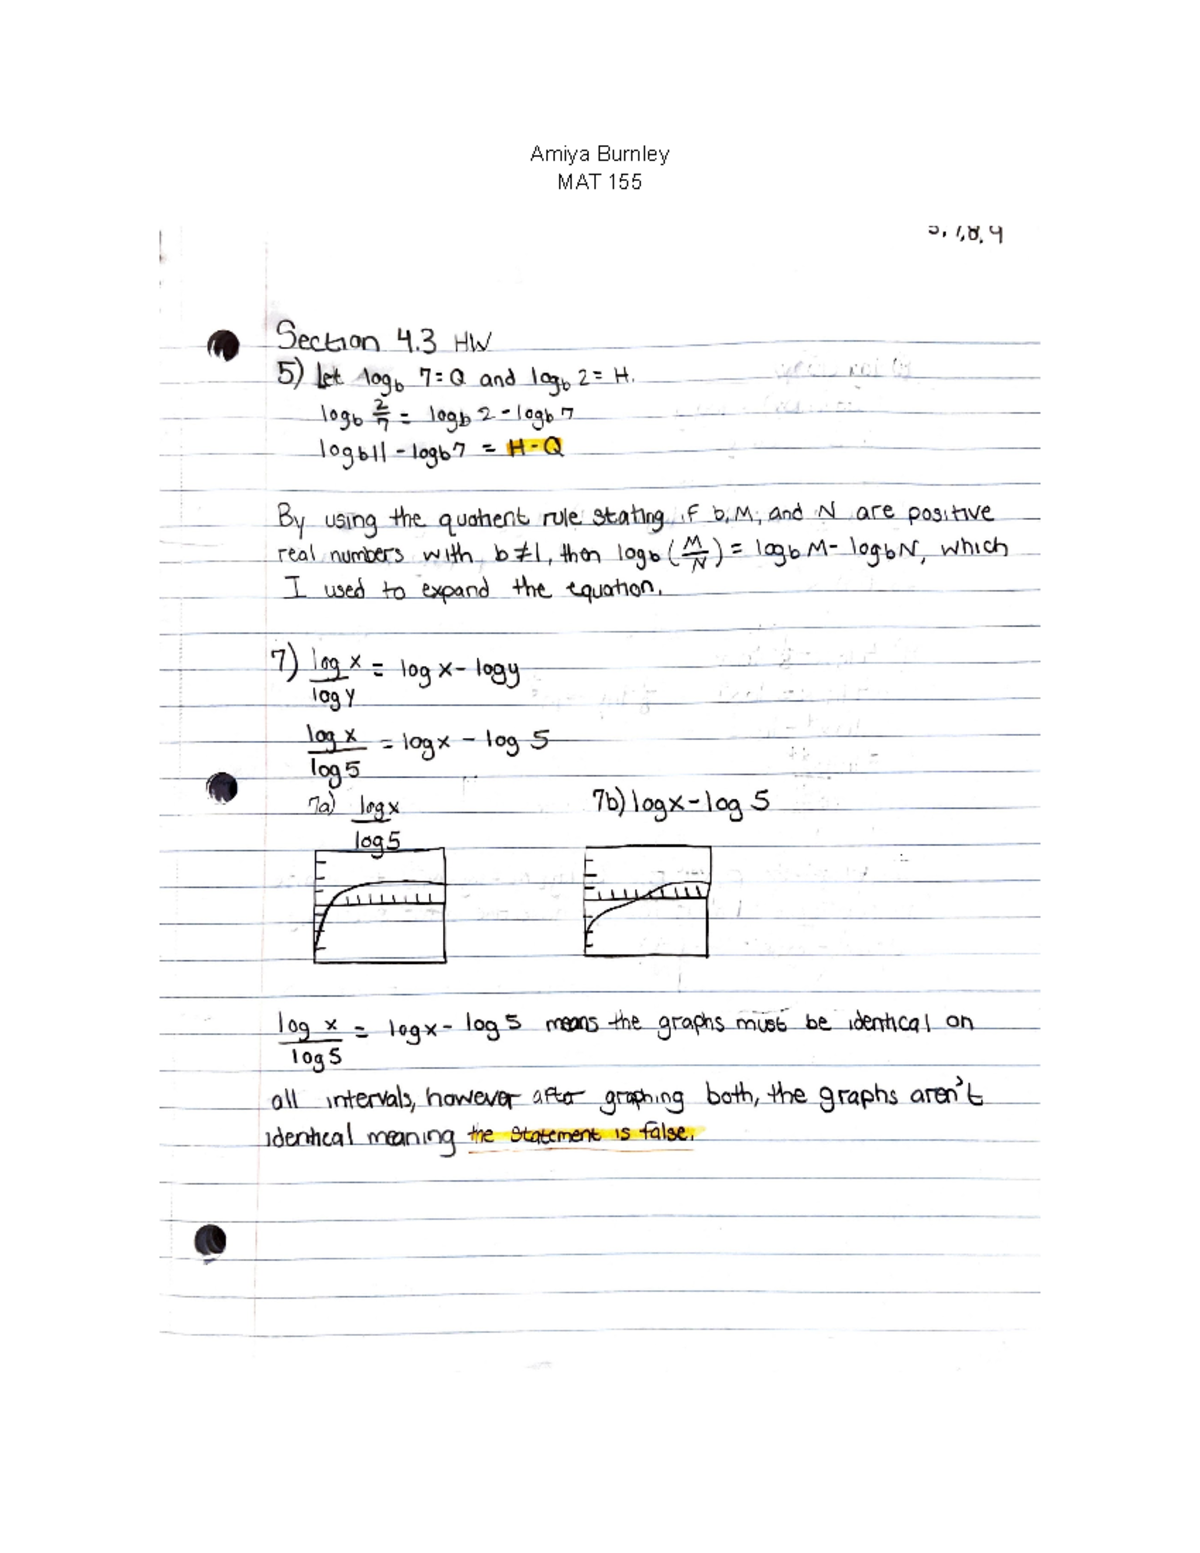 Amiya Burnley
MAT 155
Section 4.3 HW
5) Let log_b 7 = Q and log_b 2 = H.
log_b 2/7 = log_b 2 - log_b 7
log_b 11 - log_b 7 = H - Q
By using the quotient rule stating if b, M, and N are positive
real numbers with b ≠ 1, then log_b (M/N) = log_b M - log_b N, which
I used to expand the equation.
7) log x / log y = log x - log y
log x / log 5 = log x - log 5
7a) log x / log 5
7b) log x - log 5
log x / log 5 = log x - log 5 means the graphs must be identical on
all intervals, however after graphing both, the graphs aren't
identical meaning the statement is false.